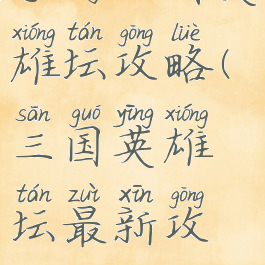 xióng tán gōng lüè
雄坛攻略(
sān guó yīng xióng
三国英雄
tán zuì xīn gōng
坛最新攻